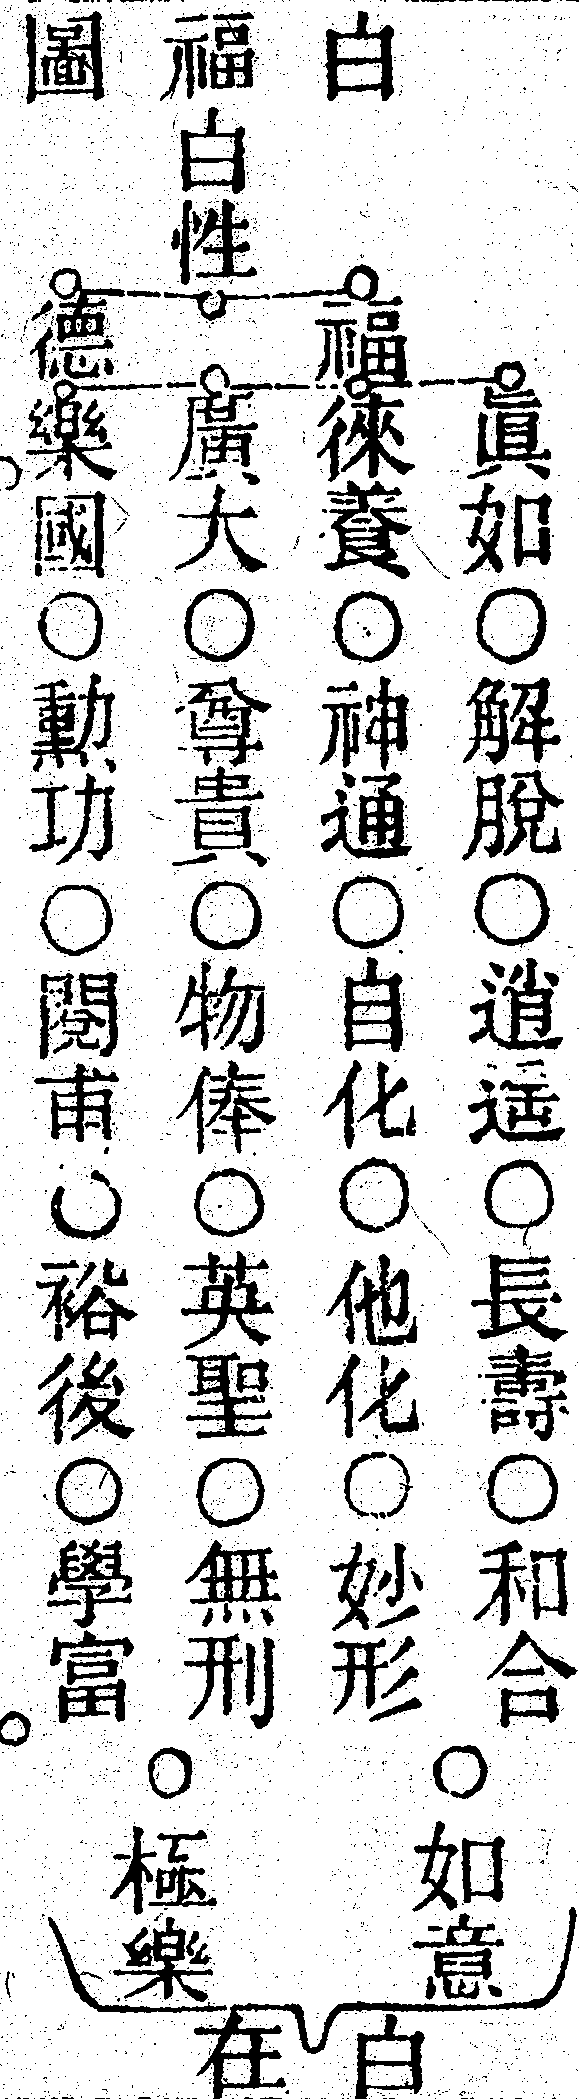 白福圖
白性
福
德
眞如○解脫○逍遙○長壽○和合
徠養○神通○自化○他化○妙形
廣大○尊貴○物俸○英聖○無刑
樂國○勳功○閱甫○裕後○學富
○如意
○極樂
白在